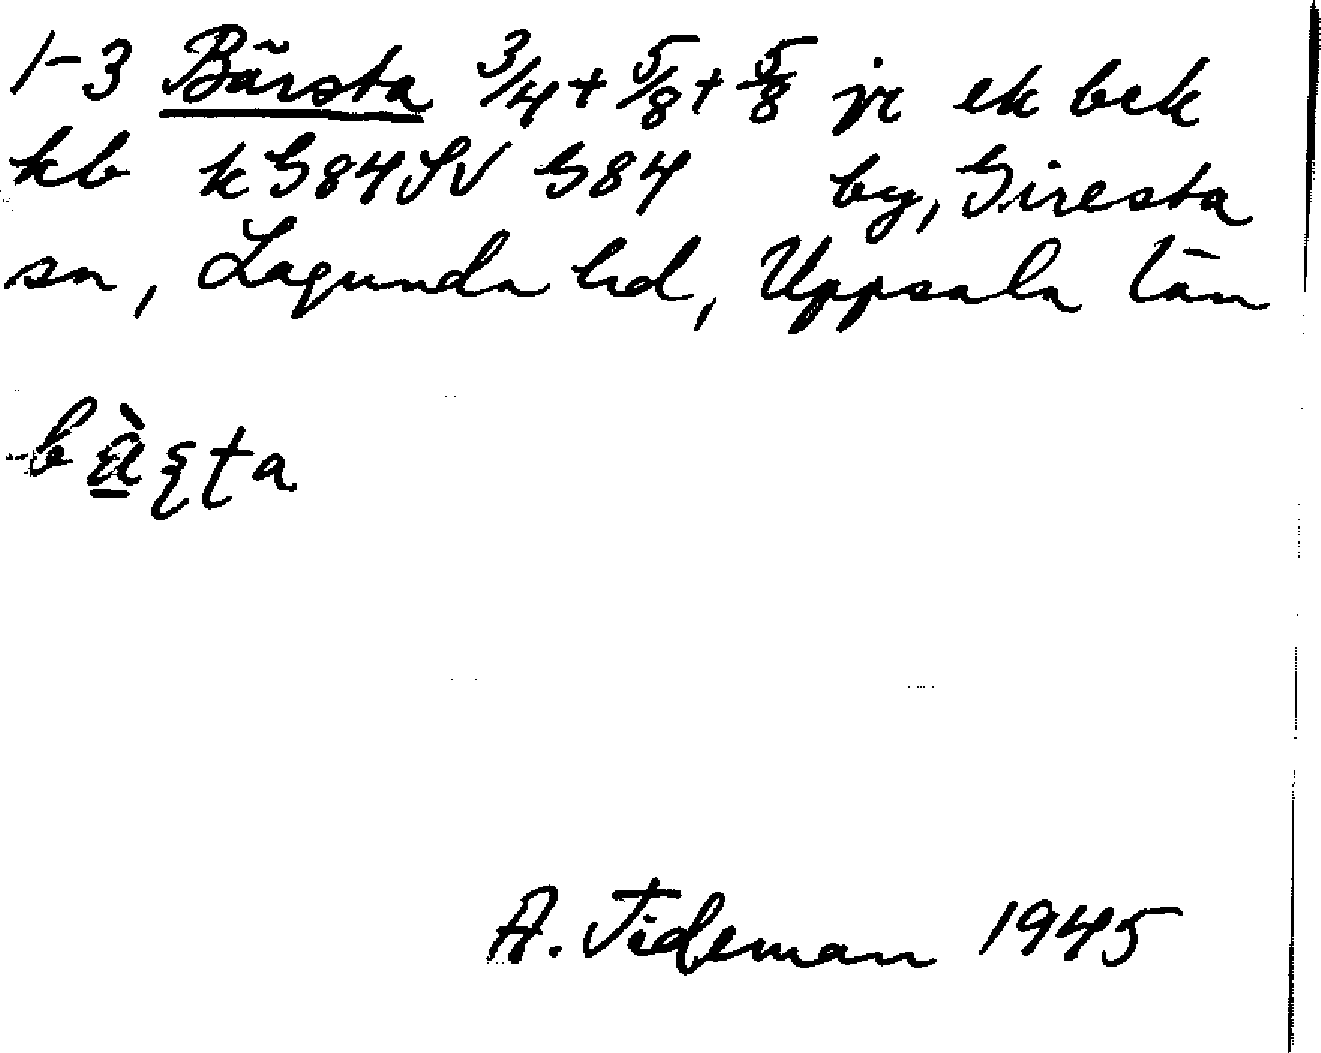 1-3 Bärsta 3/4+5/8+5/8 jr ek bek
kb k G84SV G84 by, Giresta
sn, Lagunda hd, Uppsala län
bä̀ʂʈa
A. Tideman 1945